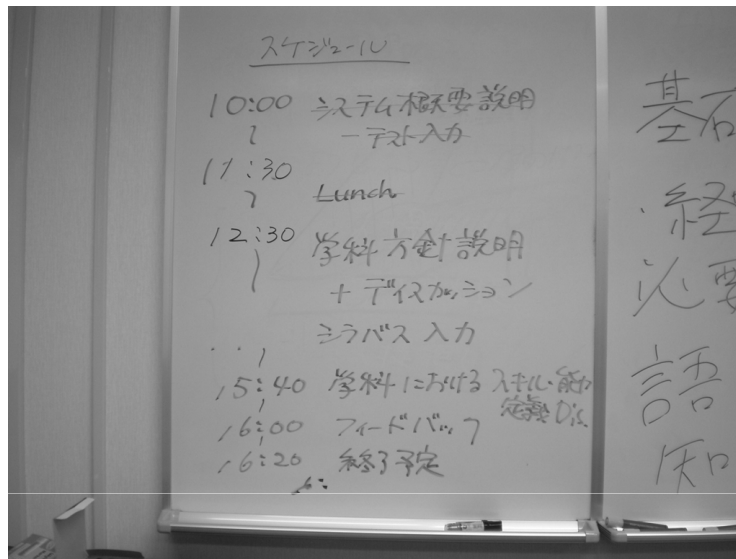 スケジュール
10:00 システム概要説明
~ ーテスト入力
11:30
~ Lunch
12:30 学科方針説明
~ + ディスカッション
シラバス 入力
15:40 学科における スキル・能力
定義 Dis.
16:00 フィードバック
16:20 終了予定
16:
基石
・経
必要
語
知